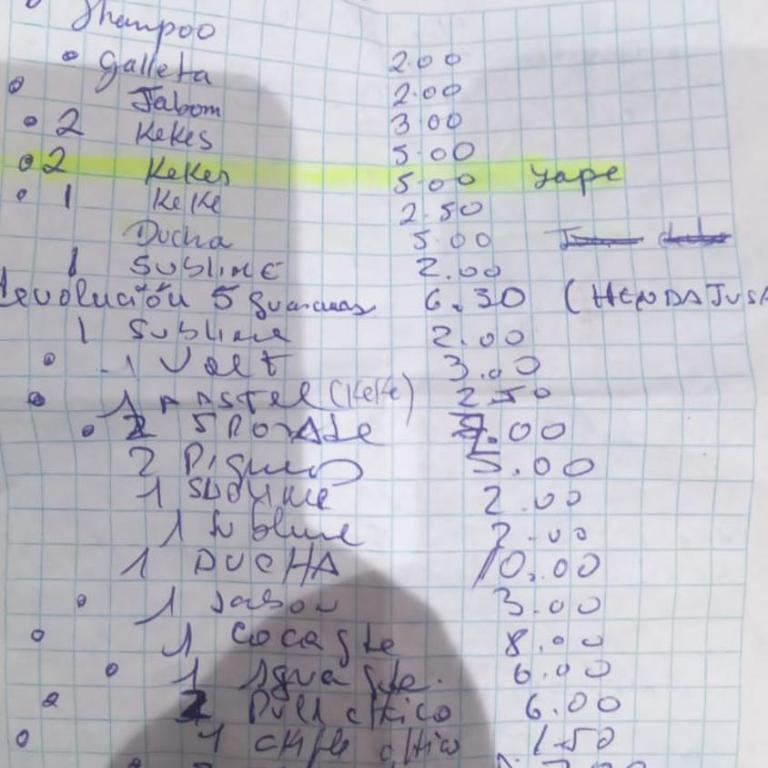 Shampoo
• Galleta 2.00
• Jabom 2.00
• 2 Kekes 3.00
• 2 Kekes 5.00
• 1 KeKe 5.00 yape
Ducha 2.50
1 SUBLIME 5.00
devolución 5 2.00
1 Sublime 6.30 (
• 1 Volt 2.00
• 1 PASTEL (KeKe) 3.00
• 2 SPORADE 2.50
2 Piqueo 7.00
1 SUBLIME 5.00
1 Sublime 2.00
1 DUCHA 2.00
• 1 Jabon 10.00
• 1 Coca gde 3.00
• 1 Agua gde. 8.00
• 2 Pull chico 6.00
• 1 chifle chico 6.00
1.50